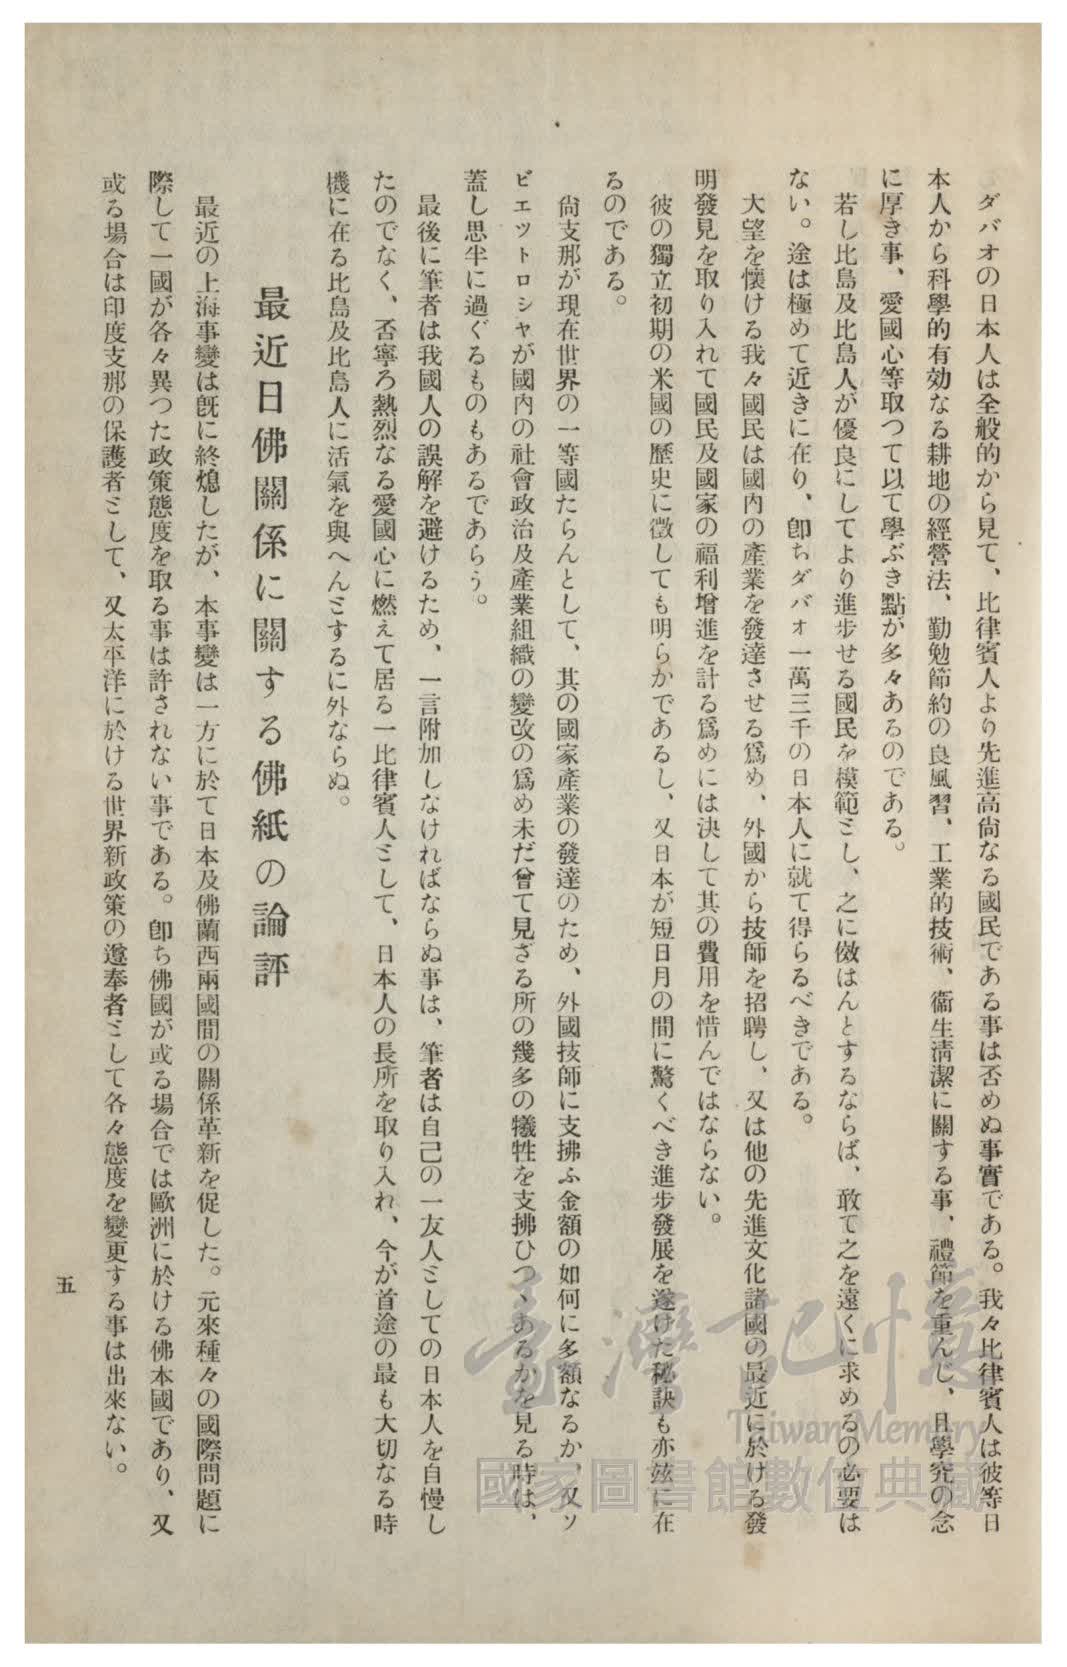 ダバオの日本人は全般的から見て、比律賓人より先進高尙なる國民である事は否めぬ事實である。我々比律賓人は彼等日
本人から科學的有効なる耕地の經營法、勤勉節約の良風習、工業的技術、衞生淸潔に關する事、禮節を重んじ、且學究の念
に厚き事、愛國心等取つて以て學ぶき點が多々あるのである。
若し比島及比島人が優良にしてより進步せる國民を模範ミし、之に傚はんとするならば、敢て之を遠くに求めるの必要は
ない。途は極めて近きに在り、卽ちダバオ一萬三千の日本人に就て得らるべきである。
大望を懷ける我々國民は國內の產業を發達させる爲め、外國から技師を招聘し、又は他の先進文化諸國の最近に於ける發
明發見を取り入れて國民及國家の福利增進を計る爲めには決して其の費用を惜んではならない。
彼の獨立初期の米國の歷史に徵しても明らかであるし、又日本が短日月の間に驚くべき進步發展を遂けた秘訣も亦玆に在
るのである。
尙支那が現在世界の一等國たらんとして、其の國家產業の發達のため、外國技師に支拂ふ金額の如何に多額なるか、又ソ
ビエツトロシヤが國內の社會政治及產業組織の變改の爲め未だ曾て見ざる所の幾多の犧牲を支拂ひつゝあるかを見る時は、
蓋し思半に過ぐるものもあるであらう。
最後に筆者は我國人の誤解を避けるため、一言附加しなければならぬ事は、筆者は自己の一友人ミしての日本人を自慢し
たのでなく、否寧ろ熱烈なる愛國心に燃えて居る一比律賓人ミして、日本人の長所を取り入れ、今が首途の最も大切なる時
機に在る比島及比島人に活氣を與へんミするに外ならぬ。
最近日佛關係に關する佛紙の論評
最近の上海事變は旣に終熄したが、本事變は一方に於て日本及佛蘭西兩國間の關係革新を促した。元來種々の國際問題に
際して一國が各々異つた政策態度を取る事は許されない事である。卽ち佛國が或る場合では歐洲に於ける佛本國であり、又
或る場合は印度支那の保護者ミして、又太平洋に於ける世界新政策の遵奉者ミして各々態度を變更する事は出來ない。
五
臺灣記憶
Taiwan Memory
國家圖書館數位典藏